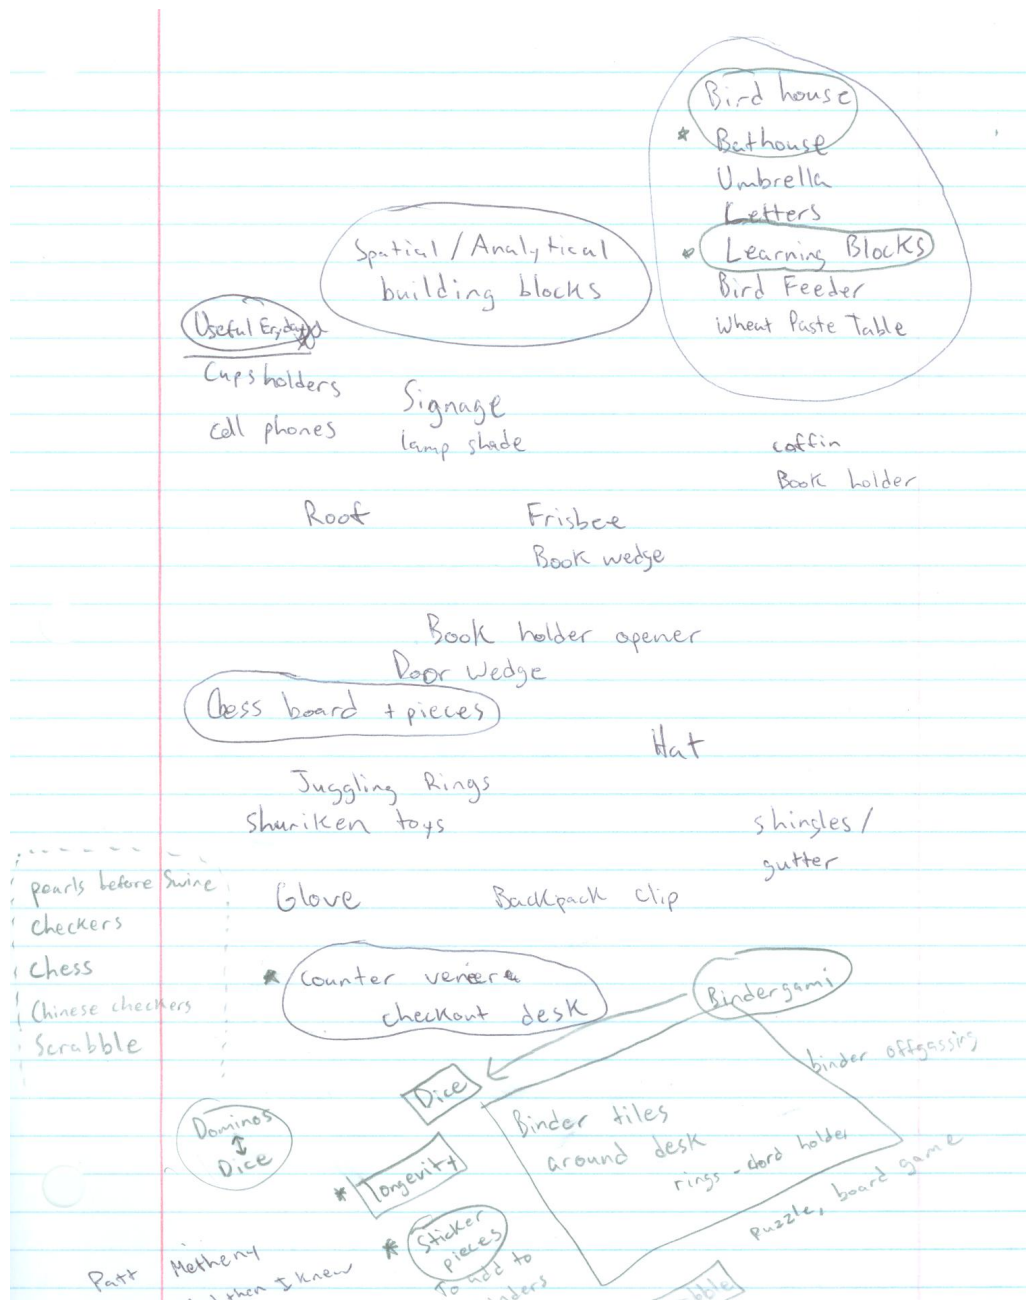 Bird house
Bathouse
Umbrella
Letters
Learning Blocks
Bird Feeder
Wheat Paste Table
Spatial / Analytical
building blocks
Useful
Cups holders
cell phones
Signage
lamp shade
coffin
Book holder
Roof
Frisbee
Book wedge
Book holder opener
Door wedge
Chess board + pieces
Hat
Juggling Rings
Shuriken toys
shingles /
gutter
Glove
Backpack clip
pearls before Swine
checkers
chess
Chinese checkers
Scrabble
counter
checkout desk
Bindergami
binder offgassing
Dice
Binder tiles
around desk
rings - holder
puzzle, board game
Dominos
Dice
Longevity
Sticker
pieces
To add to
Patt Metheny
then I knew